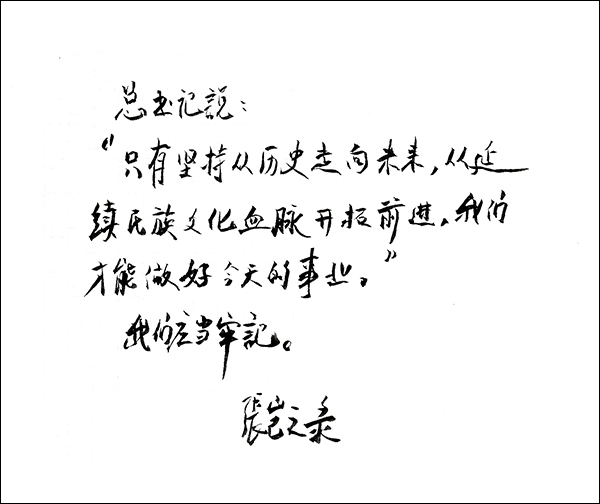 总书记説：
“只有坚持从历史走向未来，从延
续民族文化血脉开拓前进，我们
才能做好今天的事业。”
我们应当牢記。
張岂之录